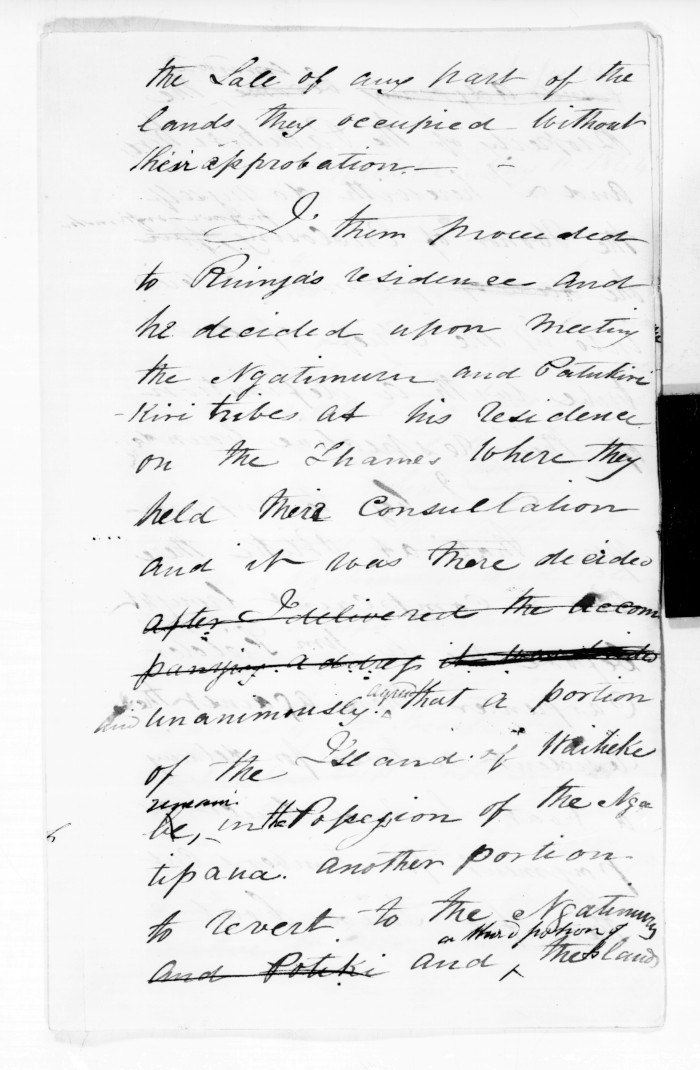 the Sale of any part of the
lands they occupied without
their approbation. —
I then proceeded
to Ruinga's residence and
he decided upon meeting
the Ngatimuru and Patukiri
-Kiri tribes at his residence
on the Thames Where they
held their Consultation
and it was there decided
after I delivered the accom
panying address
and unanimously agreed that a portion
of the Island of Waiheke
remain be, in the Possession of the Nga
tipaua. another portion
to revert to the Ngatimuru
and Potiki and a third portion of the Island